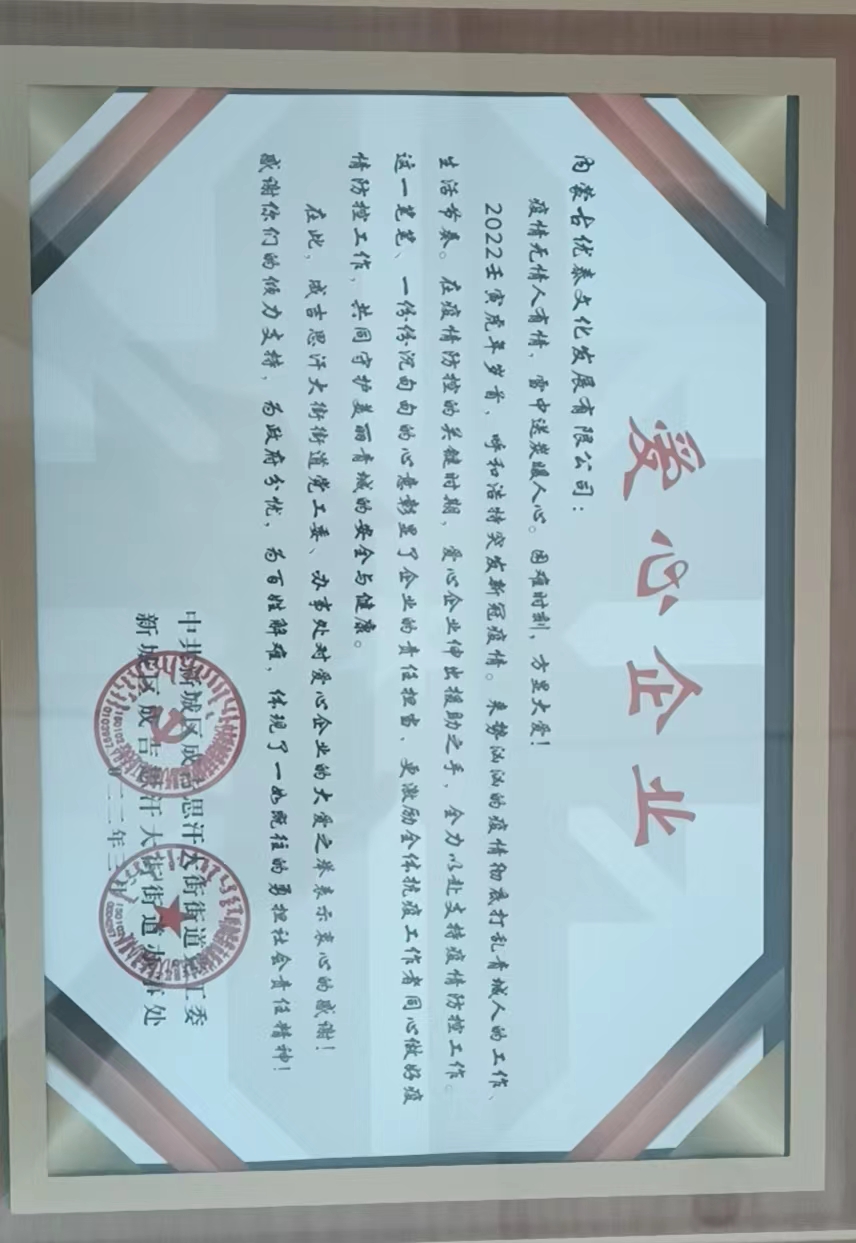 爱心企业
内蒙古优泰文化发展有限公司：
疫情无情人有情，雪中送炭暖人心。困难时刻，方显大爱！
2022壬寅虎年岁首，呼和浩特突发新冠疫情。来势汹汹的疫情彻底打乱青城人的工作、
生活节奏。在疫情防控的关键时期，爱心企业伸出援助之手，全力以赴支持疫情防控工作。
这一笔笔、一份份沉甸甸的心意彰显了企业的责任担当，更激励全体抗疫工作者同心做好疫
情防控工作，共同守护美丽青城的安全与健康。
在此，成吉思汗大街街道党工委、办事处对爱心企业的大爱之举表示衷心的感谢！
感谢你们的倾力支持，为政府分忧，为百姓解难，体现了一如既往的勇担社会责任精神！
中共新城区成吉思汗大街街道党工委
新城区成吉思汗大街街道办事处
二二年三月